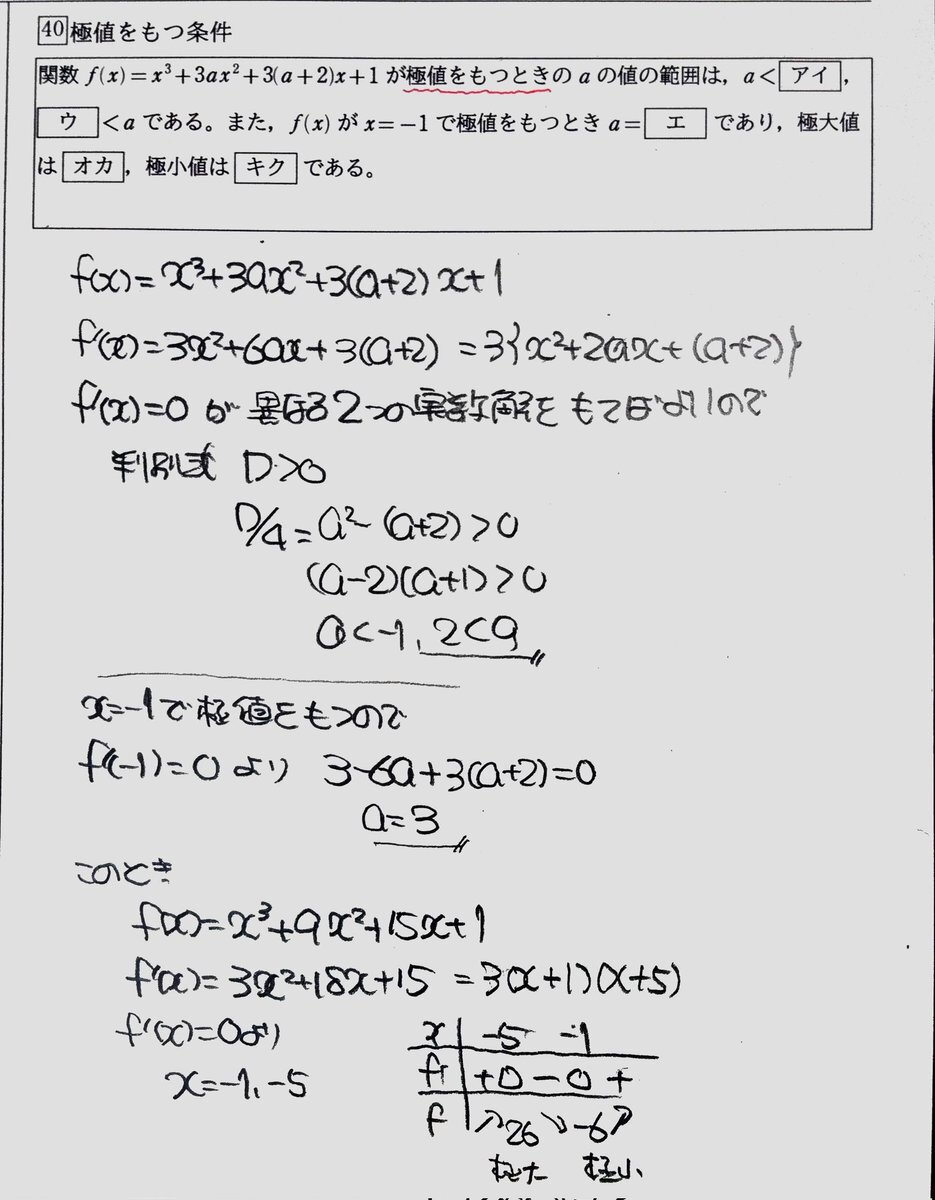 40 極値をもつ条件
関数 f(x)=x³+3ax²+3(a+2)x+1 が極値をもつときの a の値の範囲は，a< アイ ，
ウ <a である。また，f(x) が x=−1 で極値をもつとき a= エ であり，極大値
は オカ ，極小値は キク である。
f(x)=x³+3ax²+3(a+2)x+1
f'(x)=3x²+6ax+3(a+2) =3{x²+2ax+(a+2)}
f'(x)=0 が 異なる2つの実数解をもてばよいので
判別式 D>0
D/4=a²-(a+2)>0
(a-2)(a+1)>0
a<-1, 2<a
x=-1で極値をもつので
f'(-1)=0より 3-6a+3(a+2)=0
a=3
このとき
f(x)=x³+9x²+15x+1
f'(x)=3x²+18x+15 =3(x+1)(x+5)
f'(x)=0より
x=-1,-5
x -5 -1
f' + 0 - 0 +
f ↗ 26 ↘ -6 ↗
極大 極小